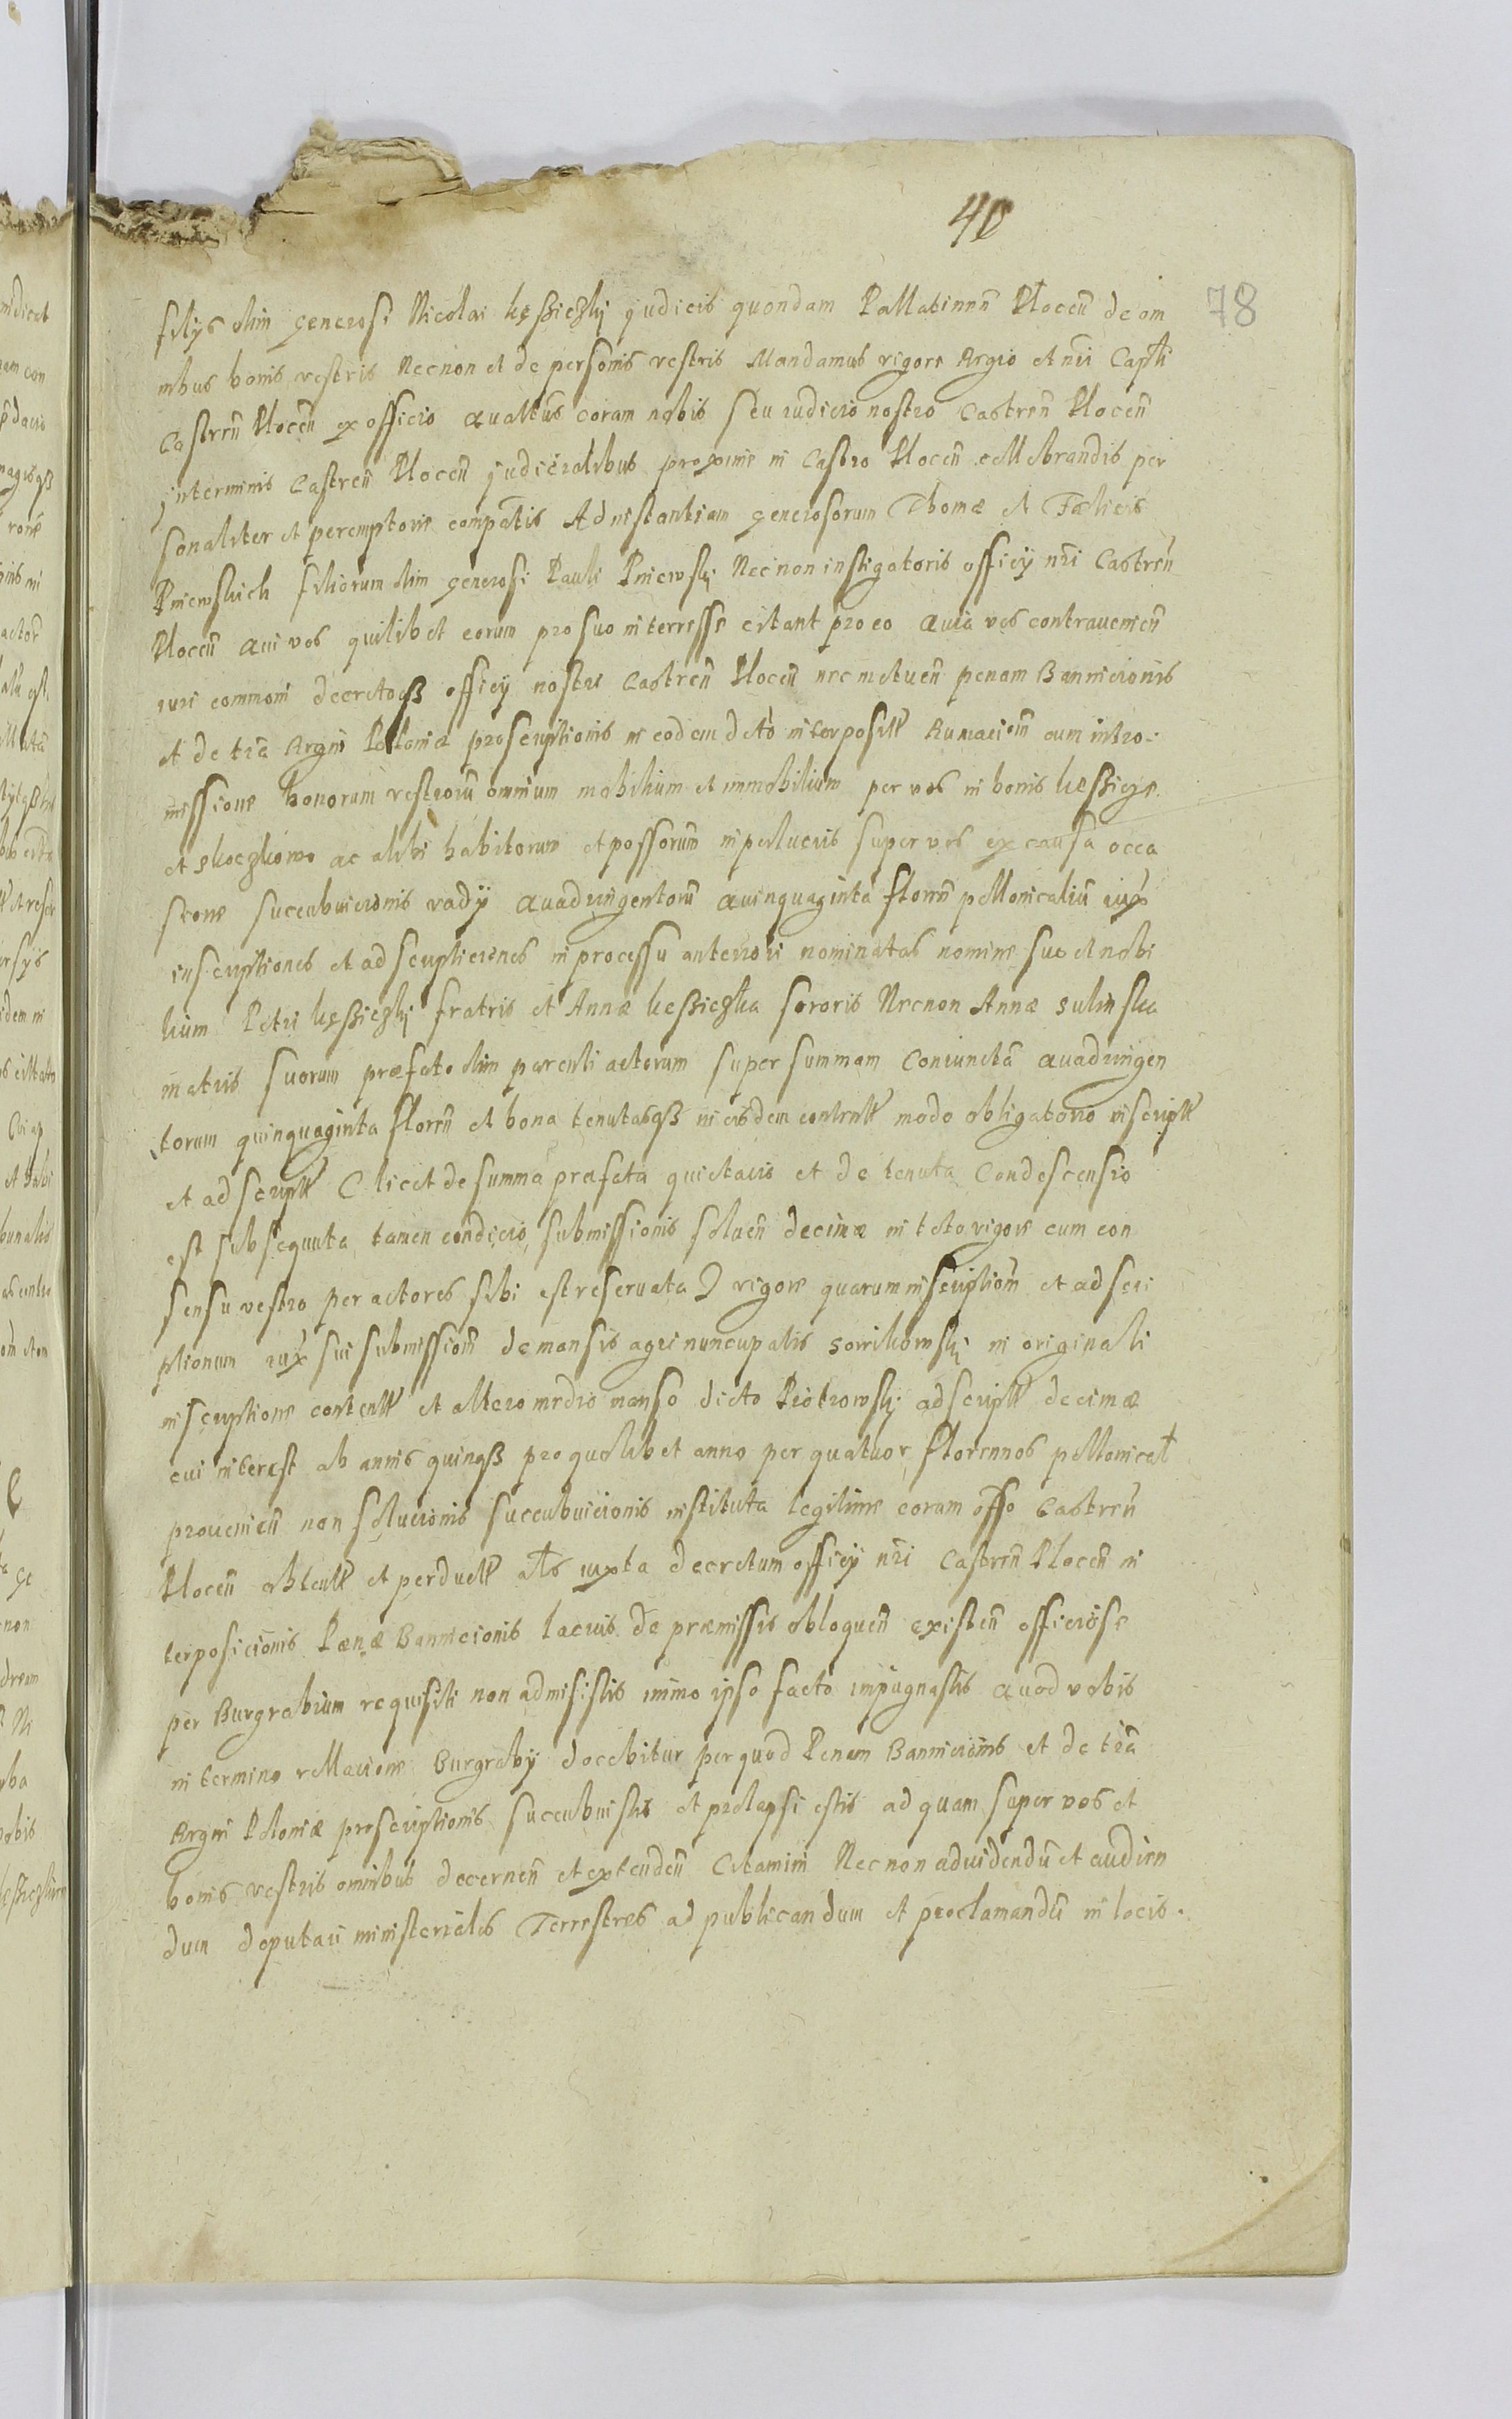 40
78
filÿs olim generosi Nicolai kęssiczkÿ judicis quondam Pallatinnñ Plocen̄ de om
nibus bonis vestris Necnon et de personis vestris Mandamus rigore Regio et nrī Captli
Castren̄ Plocen̄ ex officio Quattūs coram nobis seu iudicio nostro Castren̄ Plocen̄
jn terminis Castren̄ Plocen̄ judicialibus proxime in Castro Plocen̄ cellebrandis per
sonaliter et peremptorie compāтis Ad nistantiam generosorum Thomæ et Fælicis
Pniewskich filiorum olim generosi Pauli Pniewskÿ Necnon instigatoris officÿ nrī Castren̄
Plocen̄ Qui vos quilibet eorum pro suo interresse citant pro eo Quia vos contravenien̄
iuri communi decretoqß officÿ nostri Castren̄ Plocen̄ nec metuen̄ penam Bannicionis
et de trā Regni Poloniæ proscriptionis in eodem dcto interposiт Rumaciom̄ cum intro-
missione bonorum vestrorū omnium mobilium et immobilium per vos in bonis kęssicze
et skoczkowo ac alibi habitorum et possorum inpeluciis super vos ex causa occa
sione succubuicionis vadÿ Quadringentorū Quinquaginta floren̄ pollonicaliū iux
inscriptiones et adscripticiones in processu anteriori nominatas nomine suo et nobi
lium Petri kęssiczkÿ fratris et Annæ kęssiczka sororis Necnon Annæ sulinska
matris suorum præfato olim parenti actorum super summam Coniunctā Quadringen
torum quinquaginta floren̄ et bona tenutasqß in eisdem content modo obligatorio inscript
et adscript C licet de summa præfata quietacio et de tenuta Condescensio
est subsequuta, tamen condicio submissionis soluen̄ decimæ in toto rigore cum con
sensu vestro per actores sibi est reseruata D rigore quarum inscriptiom̄ et adscri
ptionum iux sui submissiom̄ de mansis agri nuncupatis sowikowskÿ in originali
inscriptione content et altero medio manso dicto Piotrowskÿ adscript decimæ
cui interest ab annis quinqß pro quolibet anno per quatuor florennos pollonical
provenien̄ non solucionis succubuicionis instituta legitime coram offo Castren̄
Plocen̄ obtent et perduct Ats iuxta decretum officÿ nrī Castren̄ Plocen̄ in
terposicionis Pænæ Bannicionis lacius de præmissis obloquen̄ existen̄ officiose
per Burgrabium requisiti non admisistis immo ipso facto impugnastis Quod vobis
in termino rellacione Burgrabÿ docebitur per quod Penam Bannicionis et de trā
Regni Poloniæ proscriptionis succubuistis et prolapsi estis ad quam super vos et
bonis vestris omnibus decernen̄ et extenden̄ Citamini Necnon ad videndū et audien
dum deputari ministeriales Terrestres ad publicandum et proclamandū in locis